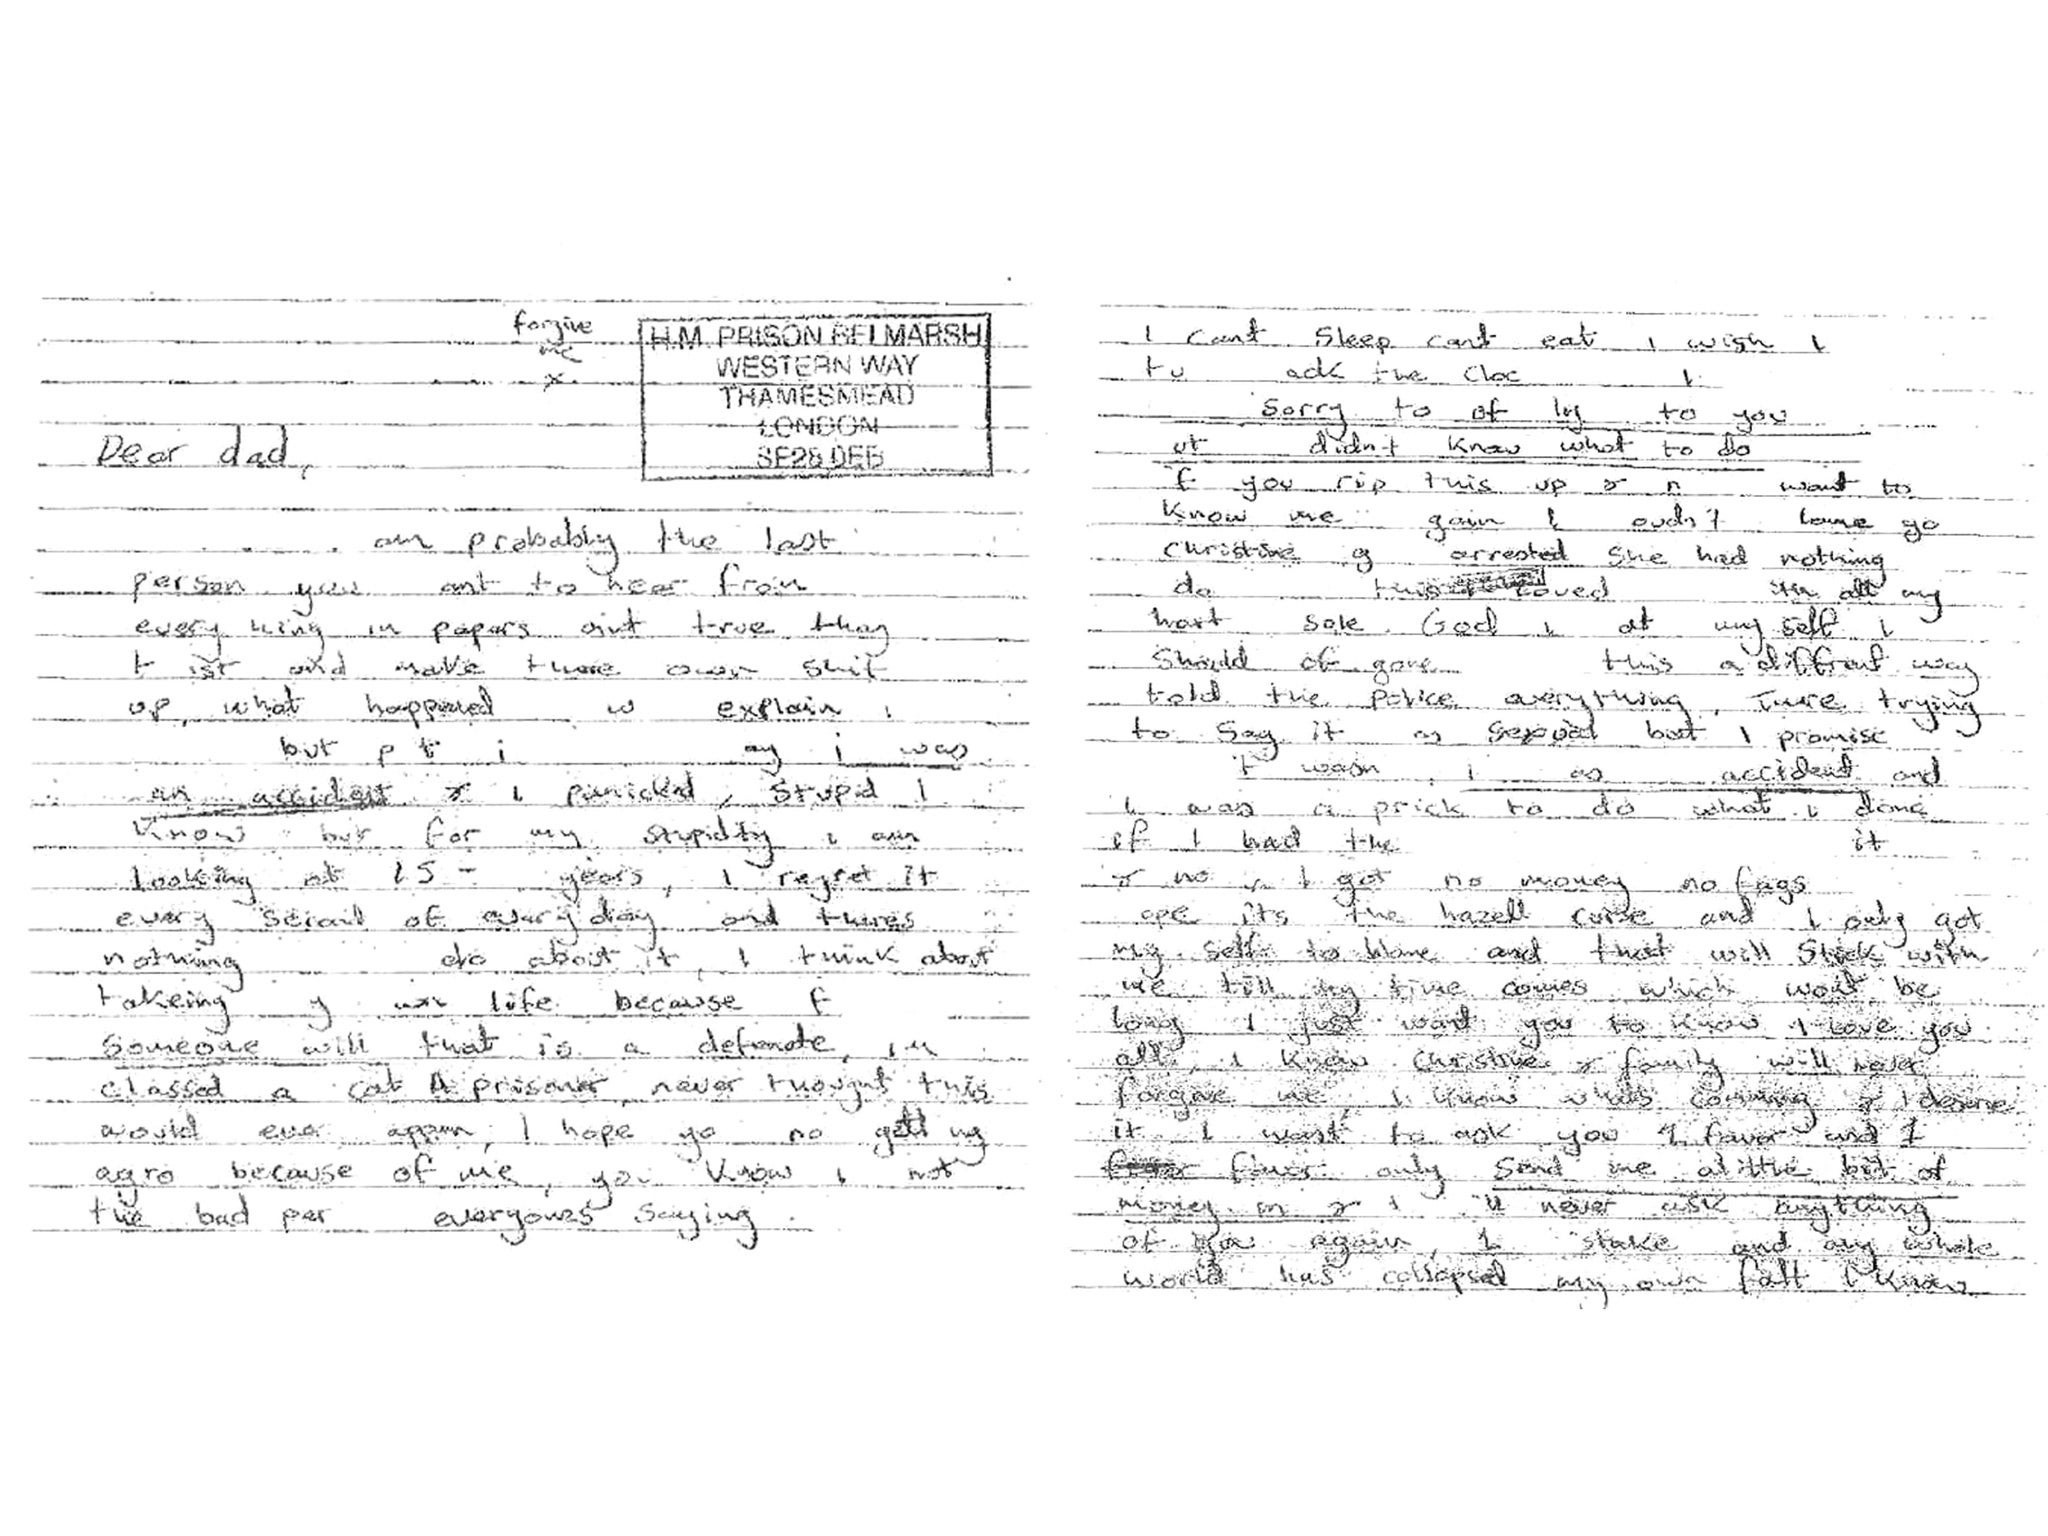 forgive
me
x
H.M. PRISON BELMARSH
WESTERN WAY
THAMESMEAD
LONDON
SE28 0EB
Dear dad,
am probably the last
person you ant to hear from
every hing in papers aint true thay
t ist and make there own shit
up, what happened explain i
but i was
an accident & i panicked, stupid I
know but for my stupidity i am
looking at 25 - years, I regret it
every secand of every day and theres
nothing do about it, I think about
takeing life because f
someone will that is a defenate, im
classed a cat A prisoner, never thought this
would ever appen, I hope yo no getting
agro because of me, you know i not
the bad per everyones saying.
I cant sleep cant eat i wish I
tu ack the cloc I
sorry to of ly to you
ut didn't know what to do
f you rip this up & n want to
know me gain I oudnt blame yo
christine g arrested she had nothing
do this loved all my
hart sole God i at my self i
should of gone this a diffrent way
told the police everything, There trying
to say it as sexual but I promise
t wasn, i as accident and
i was a prick to do what i done
if I had the it
& no I got no money no fags
ope its the hazell curse and I only got
my self to blame and that will stick with
me till my time comes which wont be
long I just want you to know I love you
all, I know Christine & family will never
forgive me, I know whats comming & I deserve
it I want to ask you 1 favor and 1
favor only send me a little bit of
money in & i 'll never ask anything
of you again, I shake and my whole
world has collapsed my own falt I know